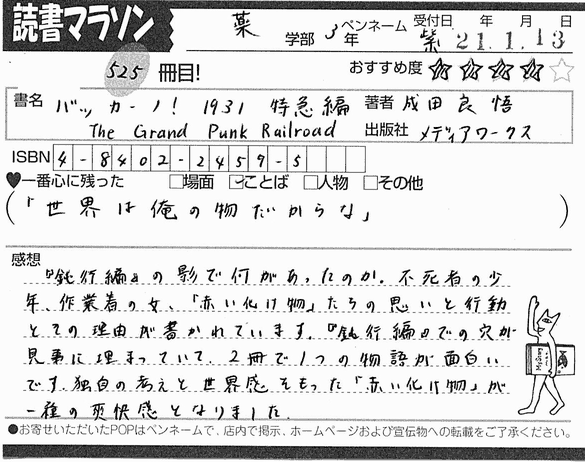 読書マラソン
薬 学部 3年 ペンネーム 紫 受付日 年 月 日 21.1.13
525 冊目! おすすめ度 ★★★★☆
書名 バッカーノ! 1931 特急編 著者 成田良悟
The Grand Punk Railroad 出版社 メディアワークス
ISBN 4-8402-2459-5
♥一番心に残った □場面 ☑ことば □人物 □その他
(「世界は俺の物だからな」)
感想
『鈍行編』の影で何があったのか。不死者の少
年、作業着の女、「赤い化け物」たちの思いと行動
とその理由が書かれています。『鈍行編』での穴が
見事に埋まっていて、2冊で1つの物語が面白い
です。独自の考えと世界感をもった「赤い化け物」が
一種の爽快感となりました。
●お寄せいただいたPOPはペンネームで、店内で掲示、ホームページおよび宣伝物への転載をご了承ください。